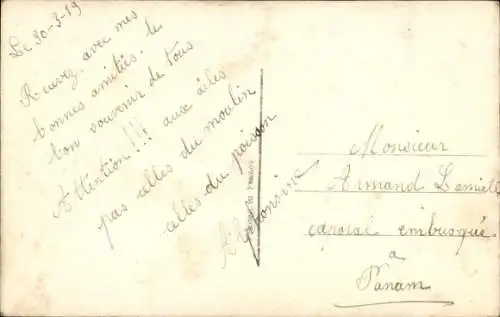 Le 30-3-19
Recevez avec mes
bonnes amitiés le
bon souvenir de tous
Attention!!! aux ailes
pas celles du moulin
celles du poisson
Alphonsine
Monsieur
Armand
caporal embusqué
à
Panam